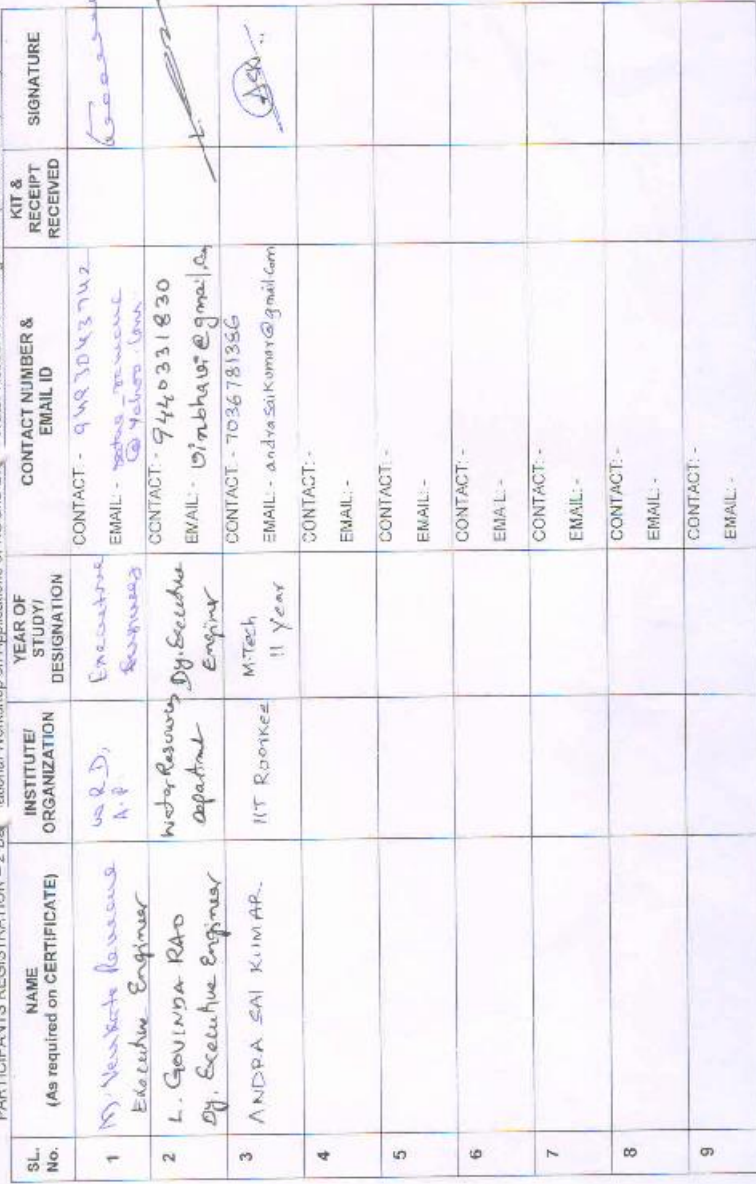 PARTICIPANTS REGISTRATION - 2 Day National Workshop on Applications of
SL. No.
NAME
(As required on CERTIFICATE)
INSTITUTE/
ORGANIZATION
YEAR OF
STUDY/
DESIGNATION
CONTACT NUMBER &
EMAIL ID
KIT &
RECEIPT
RECEIVED
SIGNATURE
1
Venkata Ramana
Executive Engineer
WRD,
A.P.
Executive
Engineer
CONTACT: -
EMAIL: -
@ yahoo.com
2
L. GOVINDA RAO
Dy. Executive Engineer
Water Resources
Department
Dy. Executive
Engineer
CONTACT: - 9440331830
EMAIL: - vinbhavi@gmail.com
3
ANDRA SAI KUMAR.
IIT ROORKEE
M.Tech
II year
CONTACT: - 7036781386
EMAIL: - andrasaikumar@gmail.com
ASK
4
CONTACT: -
EMAIL: -
5
CONTACT: -
EMAIL: -
6
CONTACT: -
EMAIL: -
7
CONTACT: -
EMAIL: -
8
CONTACT: -
EMAIL: -
9
CONTACT: -
EMAIL: -